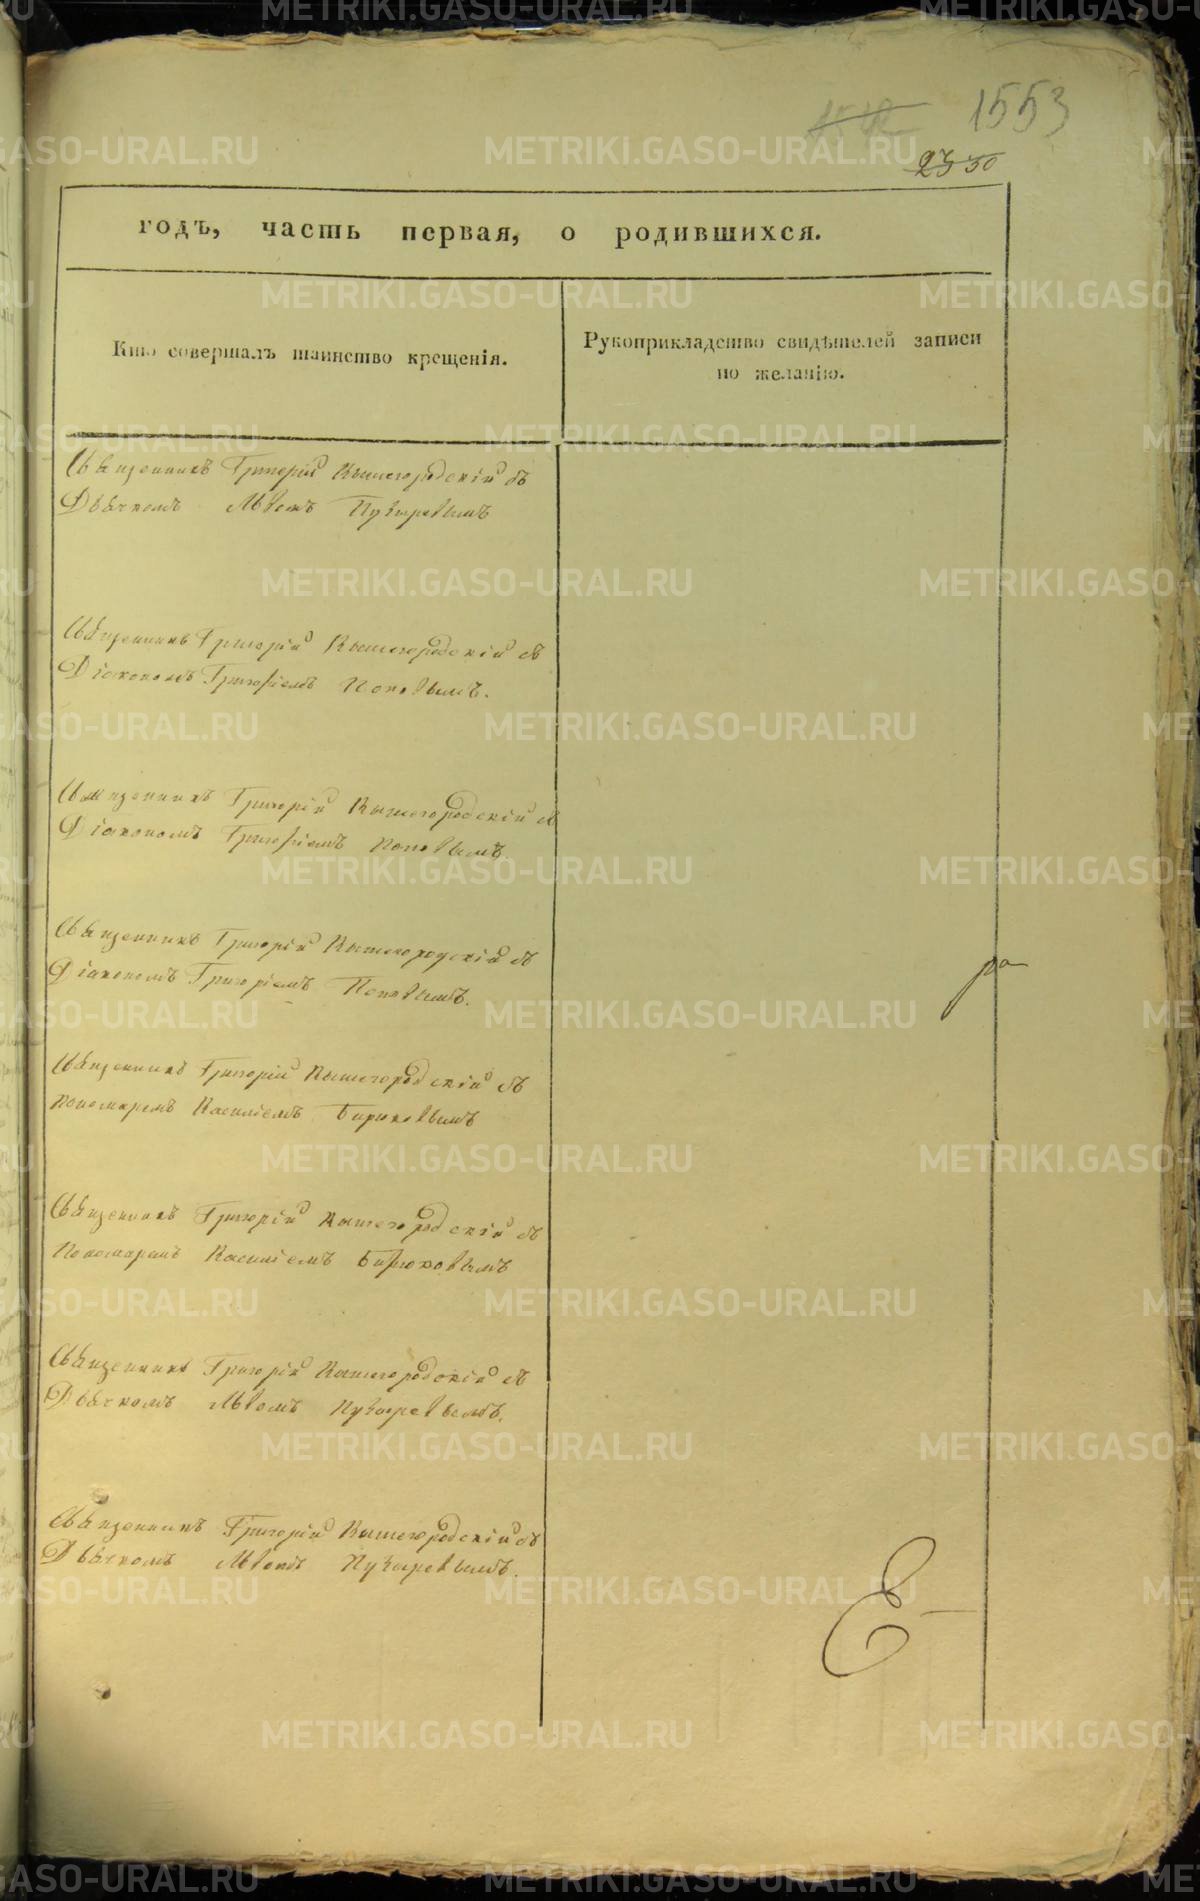 1553
2350
годъ, часть первая, о родившихся.
Кто совершалъ таинство крещенія.
Рукоприкладство свидѣтелей записи
по желанію.
Священникъ Григорій Вышегородскій съ
Дьячкомъ Львомъ Пузыревымъ
Священникъ Григорій Вышегородскій съ
Діакономъ Григоріемъ Поповымъ.
Священникъ Григорій Вышегородскій съ
Діакономъ Григоріемъ Поповымъ.
Священникъ Григорій Вышегородскій съ
Діакономъ Григоріемъ Поповымъ.
ра
Священникъ Григорій Вышегородскій съ
Пономаремъ Василіемъ Бирюковымъ
Священникъ Григорій Вышегородскій съ
Пономаремъ Василіемъ Бирюковымъ
Священникъ Григорій Вышегородскій съ
Дьячкомъ Львомъ Пузыревымъ.
Священникъ Григорій Вышегородскій съ
Дьячкомъ Львомъ Пузыревымъ.
METRIKI.GASO-URAL.RU